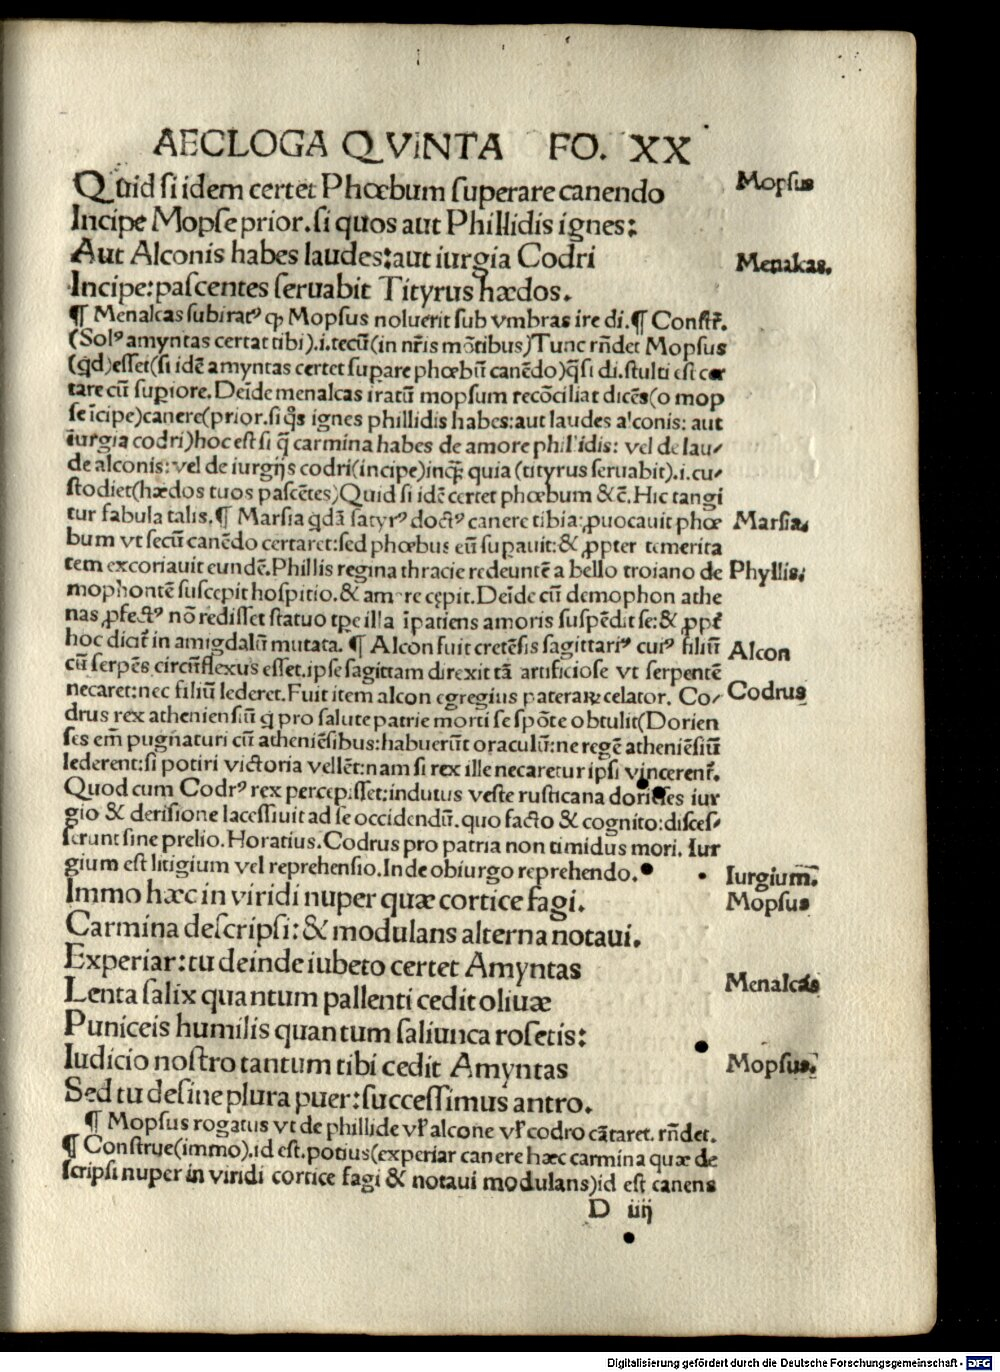 AECLOGA QVINTA FO. XX
Quid si idem certet Phœbum superare canendo
Mopsus
Incipe Mopse prior. si quos aut Phillidis ignes:
Aut Alconis habes laudes: aut iurgia Codri
Menakas.
Incipe: pascentes seruabit Tityrus hædos.
¶ Menalcas subiratꝰ ꝙ Mopsus noluerit sub vmbras ire di. ¶ Constr̃.
(Solꝰ amyntas certat tibi).i.tecū(in nr̃is mōtibus)Tunc rñdet Mopsus
(q̄d)esset(si idē amyntas certet supare phœbū canēdo)q̄si di. stulti est cer
tare cū supiore. Deīde menalcas iratū mopsum recōciliat dicēs(o mop
se īcipe)canere(prior. si q̄s ignes phillidis habes: aut laudes alconis: aut
iurgia codri)hoc est si q̄ carmina habes de amore phillidis: vel de lau⸗
de alconis: vel de iurgijs codri(incipe)inq̄ꝫ quia (tityrus seruabit).i.cu⸗
stodiet(hædos tuos pascētes)Quid si idē certet phœbum &c̄. Hic tangi
tur fabula talis. ¶ Marsia q̄dā satyrꝰ doctꝰ canere tibia: ꝓuocauit phœ
Marsia.
bum vt secū canēdo certaret: sed phœbus eū supauit: & ꝓpter temerita
tem excoriauit eundē. Phillis regina thracie redeuntē a bello troiano de
Phyllis.
mophontē suscepit hospitio. & amore cępit. Deīde cū demophon athe
nas ꝓfectꝰ nō redisset statuo tp̄e illa īpatiens amoris suspēdit se: & ꝓpt̄
hoc dicit̄ in amigdalū mutata. ¶ Alcon fuit cretēsis sagittariꝰ cuiꝰ filiū
Alcon
cū serpēs circūflexus esset. ipse sagittam direxit tā artificiose vt serpentē
necaret: nec filiū lederet. Fuit item alcon egregius pateraꝝ celator. Co⸗
Codrus
drus rex atheniensiū q̄ pro salute patrie morti se spōte obtulit(Dorien
ses em̄ pugnaturi cū atheniēsibus: habuerūt oraculū: ne regē atheniēsiū
lederent: si potiri victoria vellēt: nam si rex ille necaretur ipsi vincerent̄.
Quod cum Codrꝰ rex percepisset: indutus veste rusticana dorienses iur
gio & derisione lacessiuit ad se occidendū. quo facto & cognito: disces⸗
serunt sine prelio. Horatius. Codrus pro patria non timidus mori. Iur
gium est litigium vel reprehensio. Inde obiurgo reprehendo.
Iurgium.
Immo hæc in viridi nuper quæ cortice fagi.
Mopsus
Carmina descripsi: & modulans alterna notaui.
Experiar: tu deinde iubeto certet Amyntas
Lenta salix quantum pallenti cedit oliuæ
Menalcas
Puniceis humilis quantum saliunca rosetis:
Iudicio nostro tantum tibi cedit Amyntas
Mopsus.
Sed tu desine plura puer: successimus antro.
¶ Mopsus rogatus vt de phillide vl̄ alcone vl̄ codro cātaret. rñdet.
¶ Construe(immo).id est. potius(experiar canere hæc carmina quæ de
scripsi nuper in viridi cortice fagi & notaui modulans)id est canens
D iiij
Digitalisierung gefördert durch die Deutsche Forschungsgemeinschaft - DFG